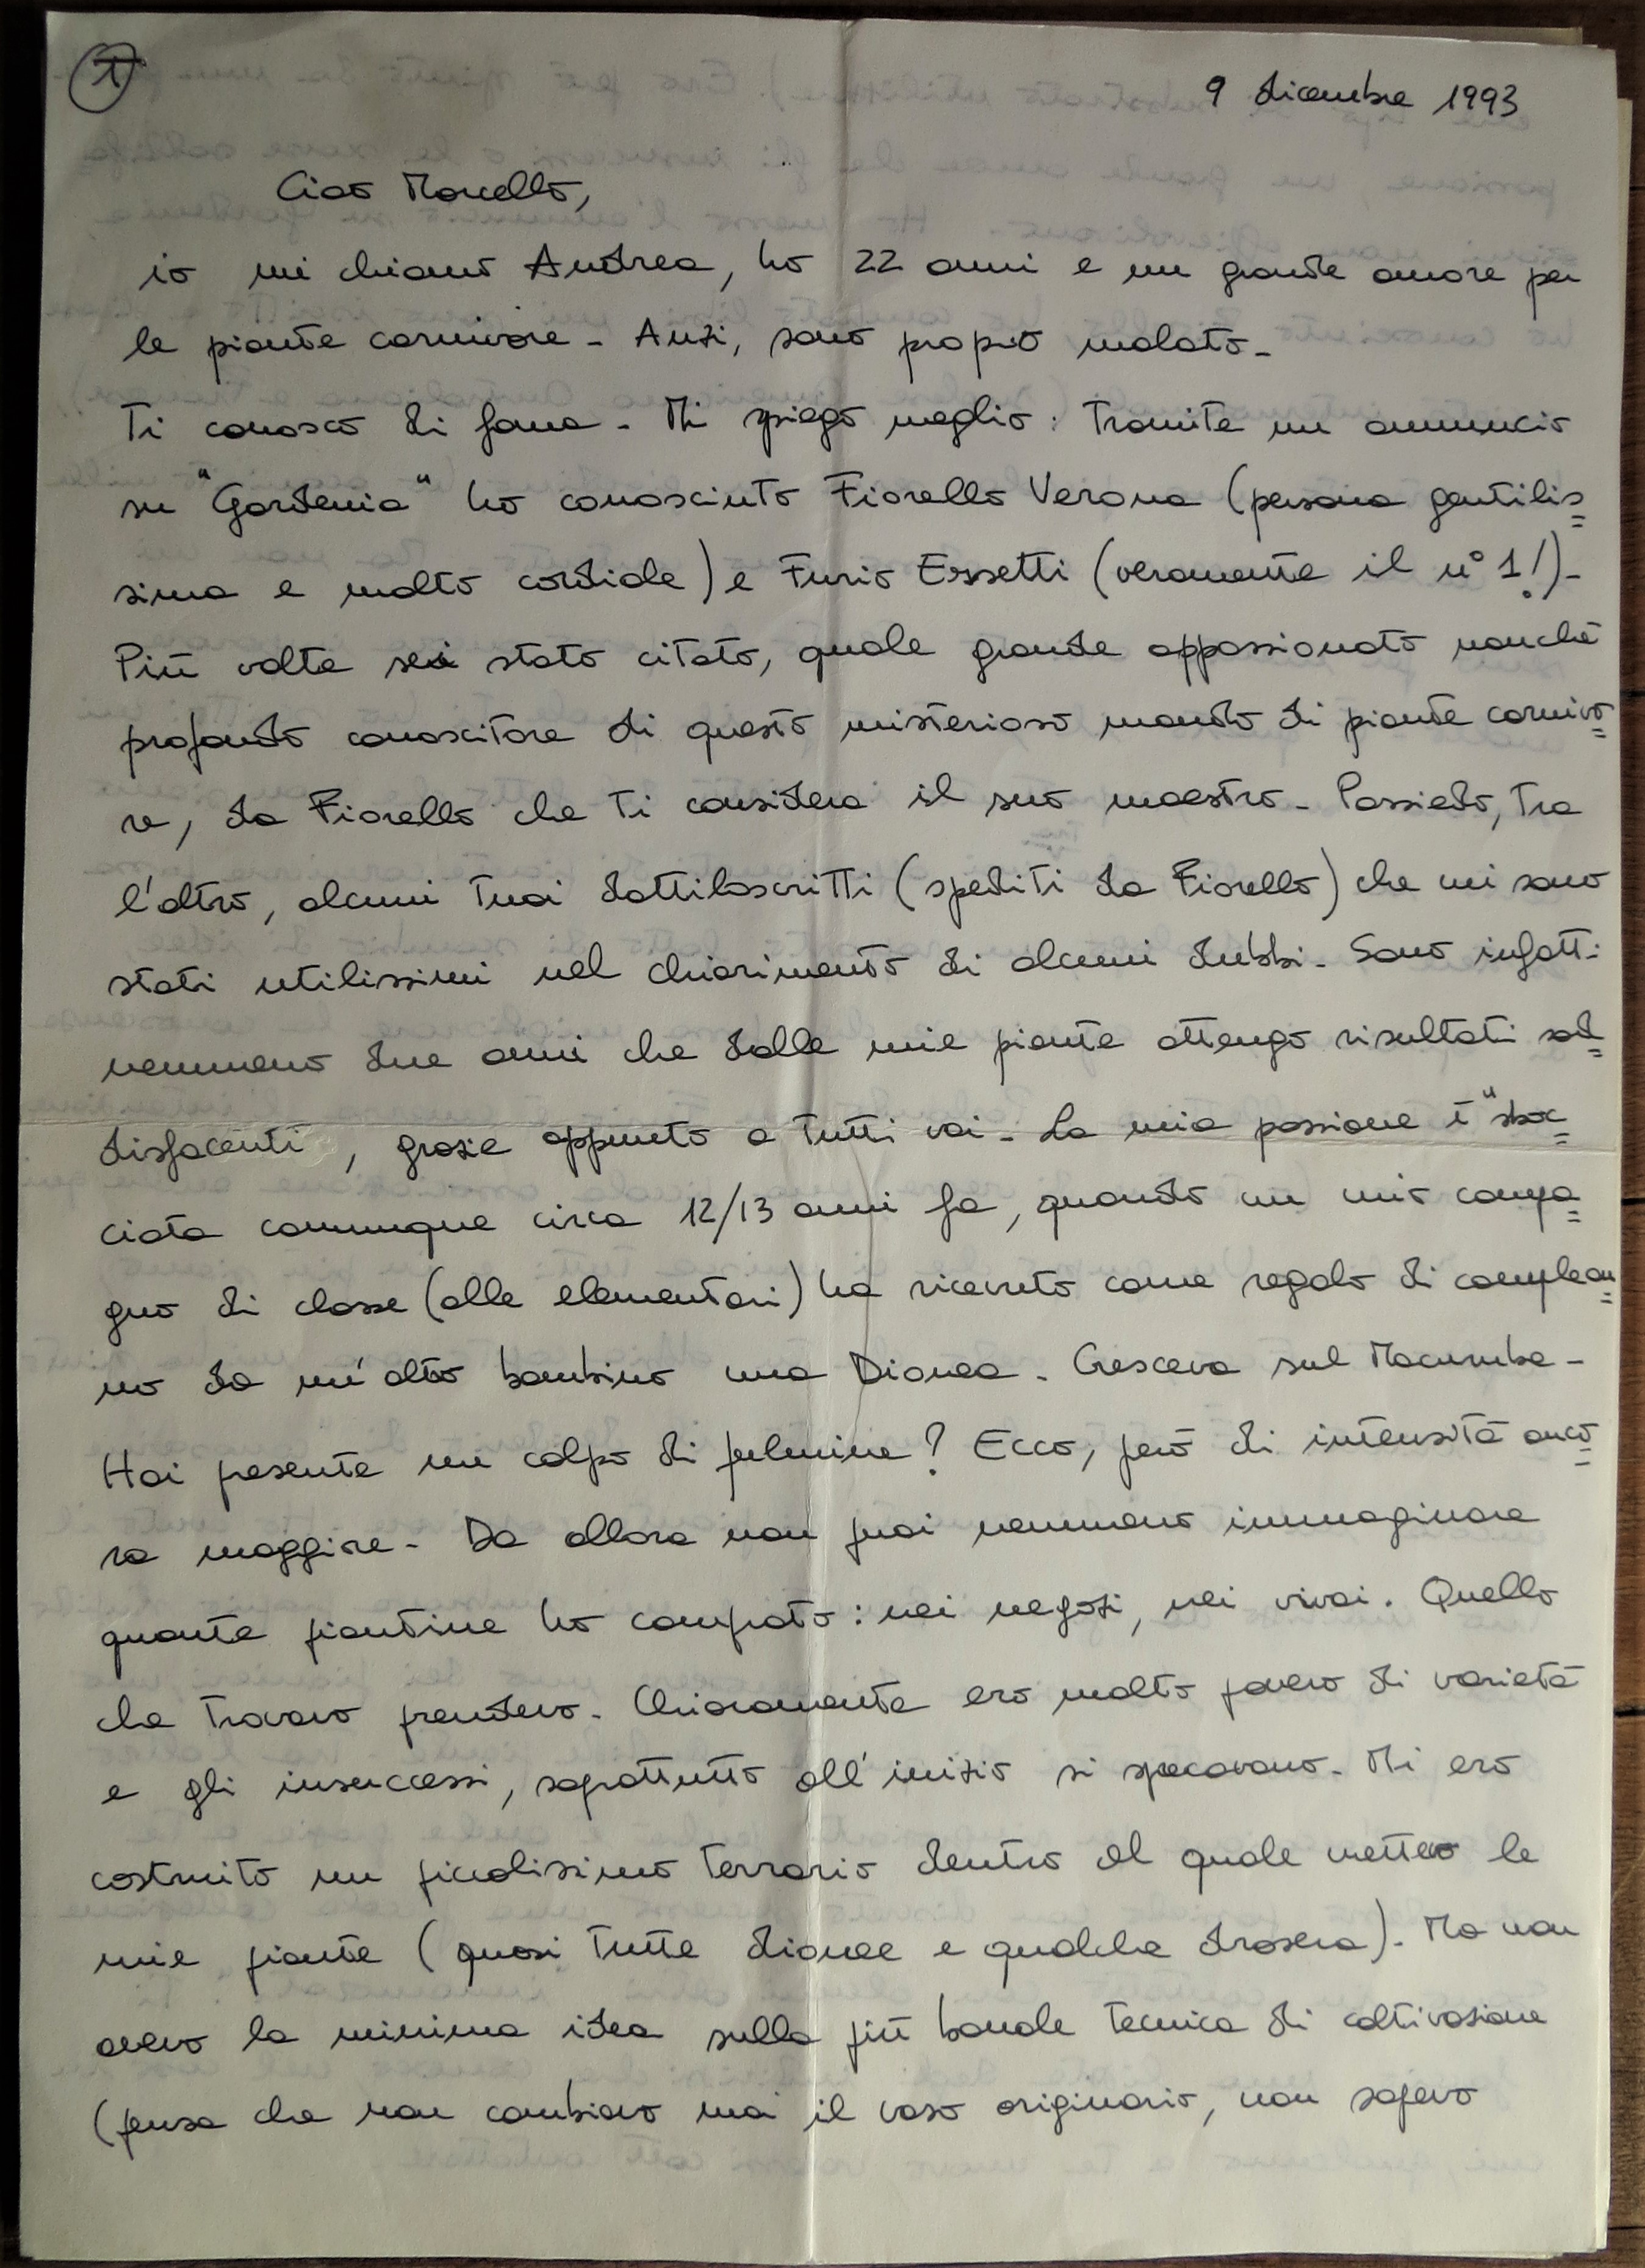 1
9 dicembre 1993
Ciao Marcello,
io mi chiamo Andrea, ho 22 anni e un grande amore per
le piante carnivore - Anzi, sono proprio malato -
Ti conosco di fama - Mi spiego meglio: Tramite un annuncio
su "Gardenia" ho conosciuto Fiorello Verona (persona gentilis=
sima e molto cordiale) e Furio Ersetti (veramente il n° 1!) -
Più volte sei stato citato, quale grande appassionato nonché
profondo conoscitore di questo misterioso mondo di piante carnivo=
re, da Fiorello che ti considera il suo maestro - Possiedo, tra
l'altro, alcuni tuoi dattiloscritti (spediti da Fiorello) che mi sono
stati utilissimi nel chiarimento di alcuni dubbi - Sono infatti
nemmeno due anni che dalle mie piante ottengo risultati sod=
disfacenti, grazie appunto a tutti voi - La mia passione è "sboc=
ciata comunque circa 12/13 anni fa, quando un mio compa=
gno di classe (alle elementari) ha ricevuto come regalo di complean=
no da un'altro bambino una Dionea. Cresceva sul Macumba -
Hai presente un colpo di fulmine? Ecco, però di intensità anco=
ra maggiore - Da allora non puoi nemmeno immaginare
quante piantine ho comprato: nei negozi, nei vivai. Quello
che trovavo prendevo - Chiaramente ero molto povero di varietà
e gli insuccessi, soprattutto all'inizio si sprecavano - Mi ero
costruito un piccolissimo terrario dentro al quale mettevo le
mie piante (quasi tutte dionee e qualche drosera) - Ma non
avevo la minima idea sulla più banale tecnica di coltivazione
(pensa che non cambiavo mai il vaso originario, non sapevo